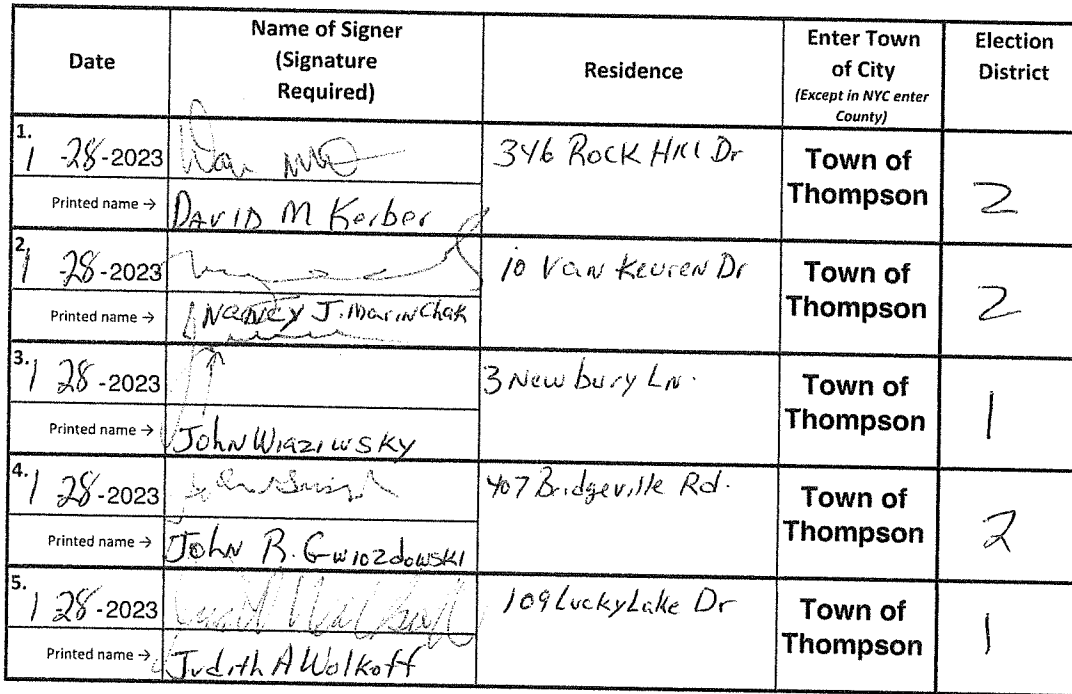 Date
Name of Signer
(Signature
Required)
Residence
Enter Town
of City
(Except in NYC enter
County)
Election
District
1.
1 -28-2023
346 Rock Hill Dr
Town of
Thompson
2
Printed name →
DAVID M Kerber
2.
1 -28-2023
10 Van Keuren Dr
Town of
Thompson
2
Printed name →
NANCY J. MarinChak
3.
1 28-2023
3 Newbury Ln.
Town of
Thompson
1
Printed name →
John Wiaziwsky
4.
1 28-2023
407 Bridgeville Rd.
Town of
Thompson
2
Printed name →
John R. Gwiozdowski
5.
1 28-2023
109 Lucky Lake Dr
Town of
Thompson
1
Printed name →
Judith A Wolkoff